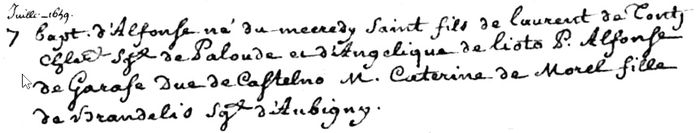 Juille - 1659.
7 bapt. d'Alfonse né du mecredy saint fils de laurent de Tontj
Sgr de Paloude et d'Angelique de lioto P. Alfonse
de Garase Duc de Castelno M. Caterine de Morel fille
de Brandelis Sgr d'Aubigny.